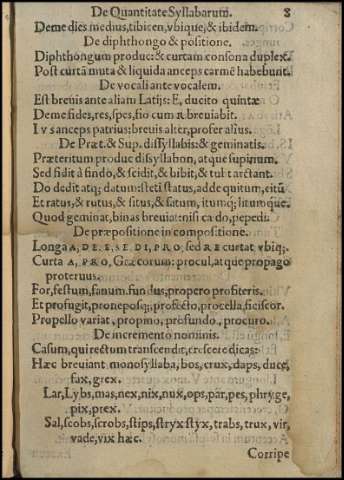 De Quantitate Syllabarum. 8
Deme dies medius, tibicen, vbique, & ibidem.
De diphthongo & positione.
Diphthongum produc: & curtam consona duplex.
Post curtã muta & liquida anceps carmẽ habebunt.
De vocali ante vocalem.
Est breuis ante aliam Latijs: E, ducito quintæ
Deme fides, res, spes, fio cum R breuiabit.
I v sanceps patrius: breuis alter, profer alius.
De Præt. & Sup. dissyllabis: & geminatis.
Præteritum produc dissyllabon, atque supinum.
Sed fidit à findo, & scidit, & bibit, & tulit arctant.
Do dedit atq; datum: steti status, adde quitum, citũ
Et ratus, & rutus, & situs, & satum, itumq; litumque.
Quod geminat, binas breuiat: nisi cædo, pepedi.
De præpositione in compositione.
Longa A, DE, E, SE, DI, PRO, sed RE curtat vbiq;.
Curta A, PRO, Græcorum: procul, atque propago
proteruus.
For, festum, fanum, fundus, propero profiteris.
Et profugit, proneposq;, profecto, procella, ficiscor.
Propello variat, propino, profundo, procuro.
De incremento nominis.
Casum, qui rectum transcendit, crescere dicas:
Hæc breuiant monosyllaba, bos, crux, daps, duce,
fax, grex.
Lar, Lybs, mas, nex, nix, nux, ops, par, pes, phryge,
pix, prex.
Sal, scobs, scrobs, stips, stryx styx, trabs, trux, vir,
vade, vix hæc.
Corripe